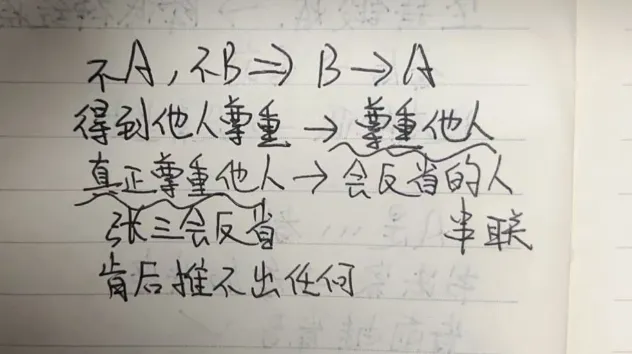 不A,不B⇒ B→A
得到他人尊重→尊重他人
真正尊重他人→会反省的人
张三会反省 串联
肯后推不出任何